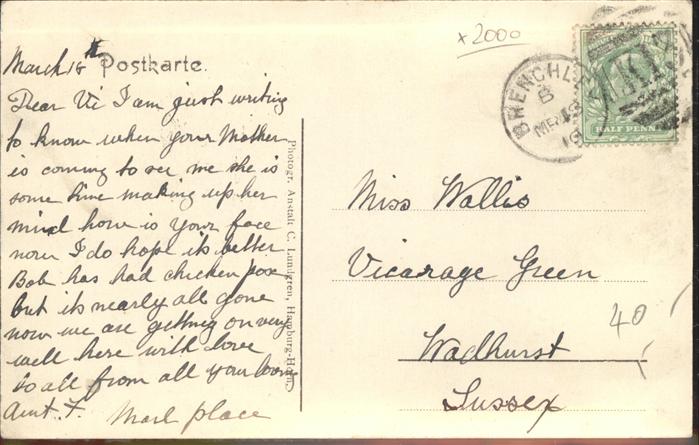 x2000
March 18th
Postkarte.
Dear Vi I am just writing
to know when your Mother
is coming to see me she is
some time making up her
mind how is your face
now I do hope its better
Bob has had chicken pox
but its nearly all gone
now we are getting on very
well here with love
to all from all your loving
Aunt. F.
Marl place
Photogr. Anstalt C. Lundgren, Hamburg-Horn.
BRENCHL
B
HALF PENN
Miss Wallis
Vicarage Green
Wadhurst
Sussex
40